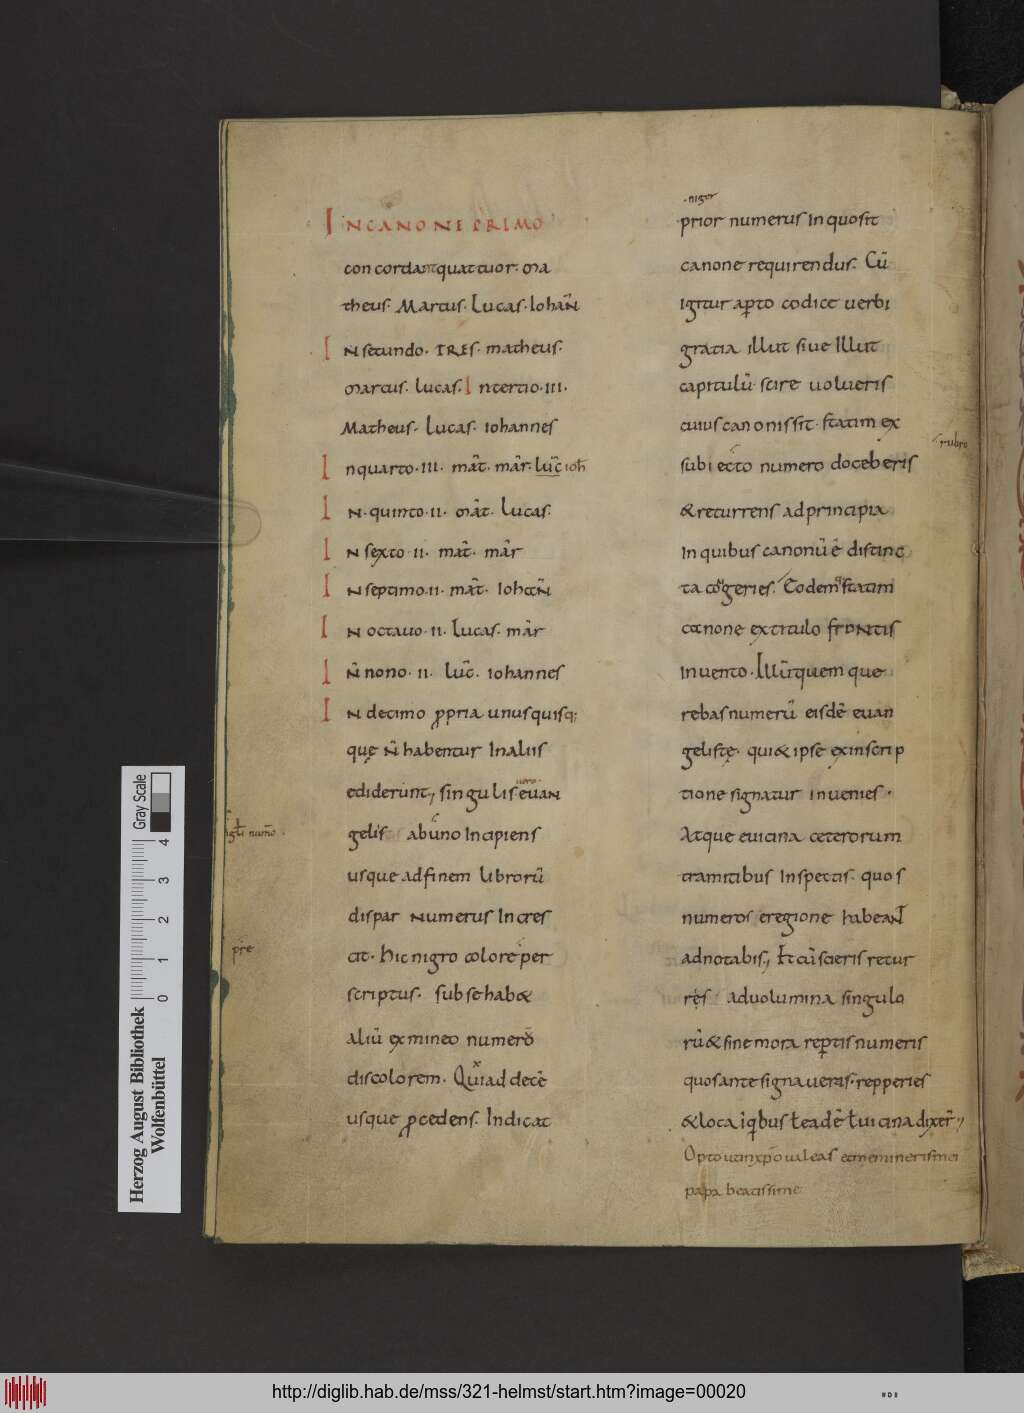 IN CANONE PRIMO
concordant quattuor. Ma
theus. Marcus. Lucas. Iohan̄
In secundo. TRES. matheus.
Marcus. Lucas. In tertio. III.
Matheus. Lucas. iohannes
In quarto. III. mat̄. mar̄. luc̄ ioh̄
IN. quinto. II. mat̄. Lucas.
IN sexto. II. mat̄. mar̄
IN septimo. II. mat̄. Iohan̄
IN octavo. II. Lucas. mar̄
IN̄ nono. II. Luc̄. iohannes
IN decimo ꝓpria unusquisq;
quę N̄ habentur In aliis
ediderunt; singulis evan
uero.
gelis ab uno Incipiens
usque ad finem librorū
dispar numerus Incres
cit. hic nigro colore per
scriptus. sub se hab&
aliū ex mineo numerō
discolorem. Qui ad decē
usque ꝓcedens. Indicat
niger
prior numerus In quo sit
canone requirendus. Cū
igitur aꝑto codice verbi
gratia illut sive Illut
capitulū. scire volueris
cuius canonis sit. statim ex
rubro
subiecto numero doceberis
& recurrens ad principia
In quibus canonū ē distinc
ta cōgeries. Eodem statim
canone ex titulo frontis
invento. Illū quem que
rebas numerū eisdē evan
gelistę. qui & ipse ex inscrip
tione signatur invenies.
Atque e vicina ceterorum
tramitibus Inspectis. quos
numeros e regione habeant
adnotabis; Et cū scieris recur
res ad volumina singulo
rū & sine mora reꝑtis numeris
quos ante signaveras. repperies
& loca i quibus ł eadē ł vicina dixer̄;
Opto ut in xp̄o valeas et memineris mei
papa beatissime
Herzog August Bibliothek
Wolfenbüttel
0 1 2 3 4
Gray Scale
http://diglib.hab.de/mss/321-helmst/start.htm?image=00020